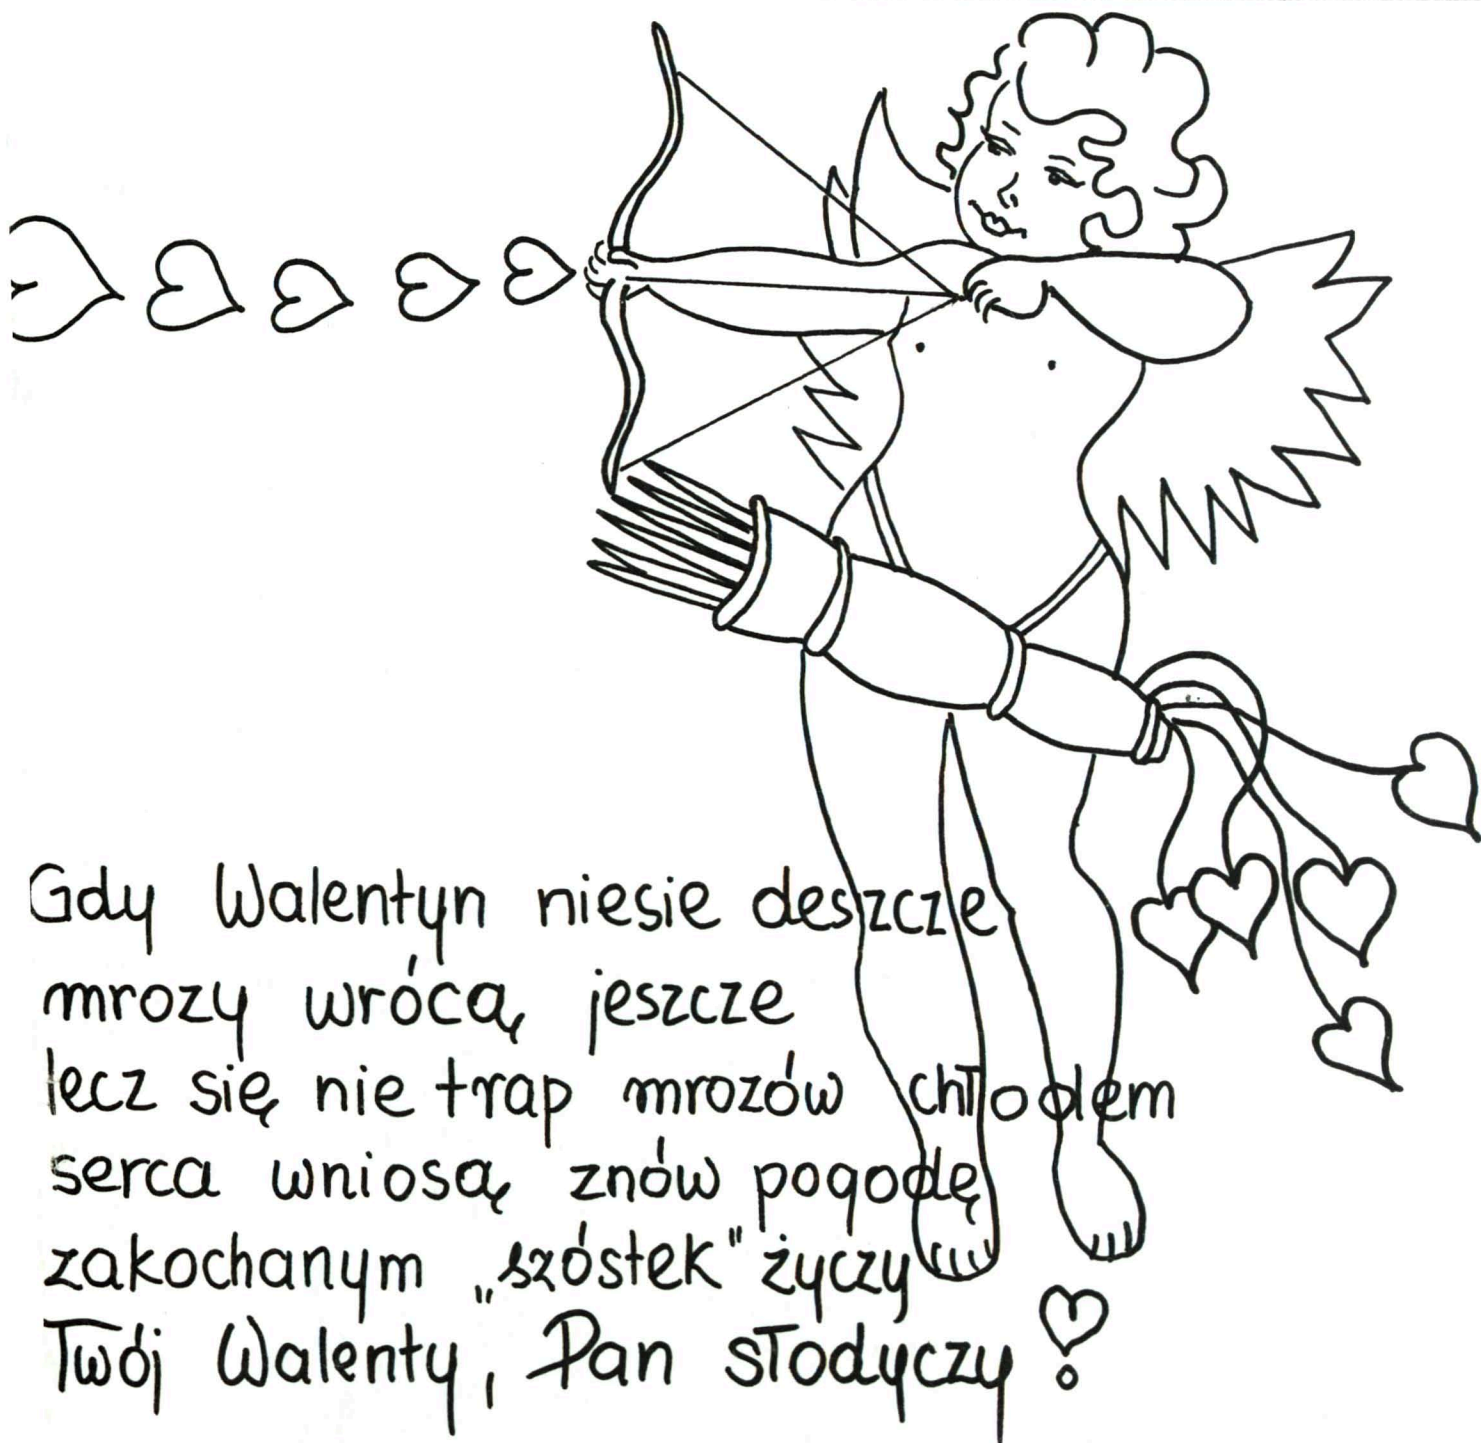 Gdy Walentyn niesie deszcze
mrozy wrócą jeszcze
lecz się nie trap mrozów chłodem
serca wniosą znów pogodę
zakochanym „szóstek" życzy
Twój Walenty, Pan słodyczy!